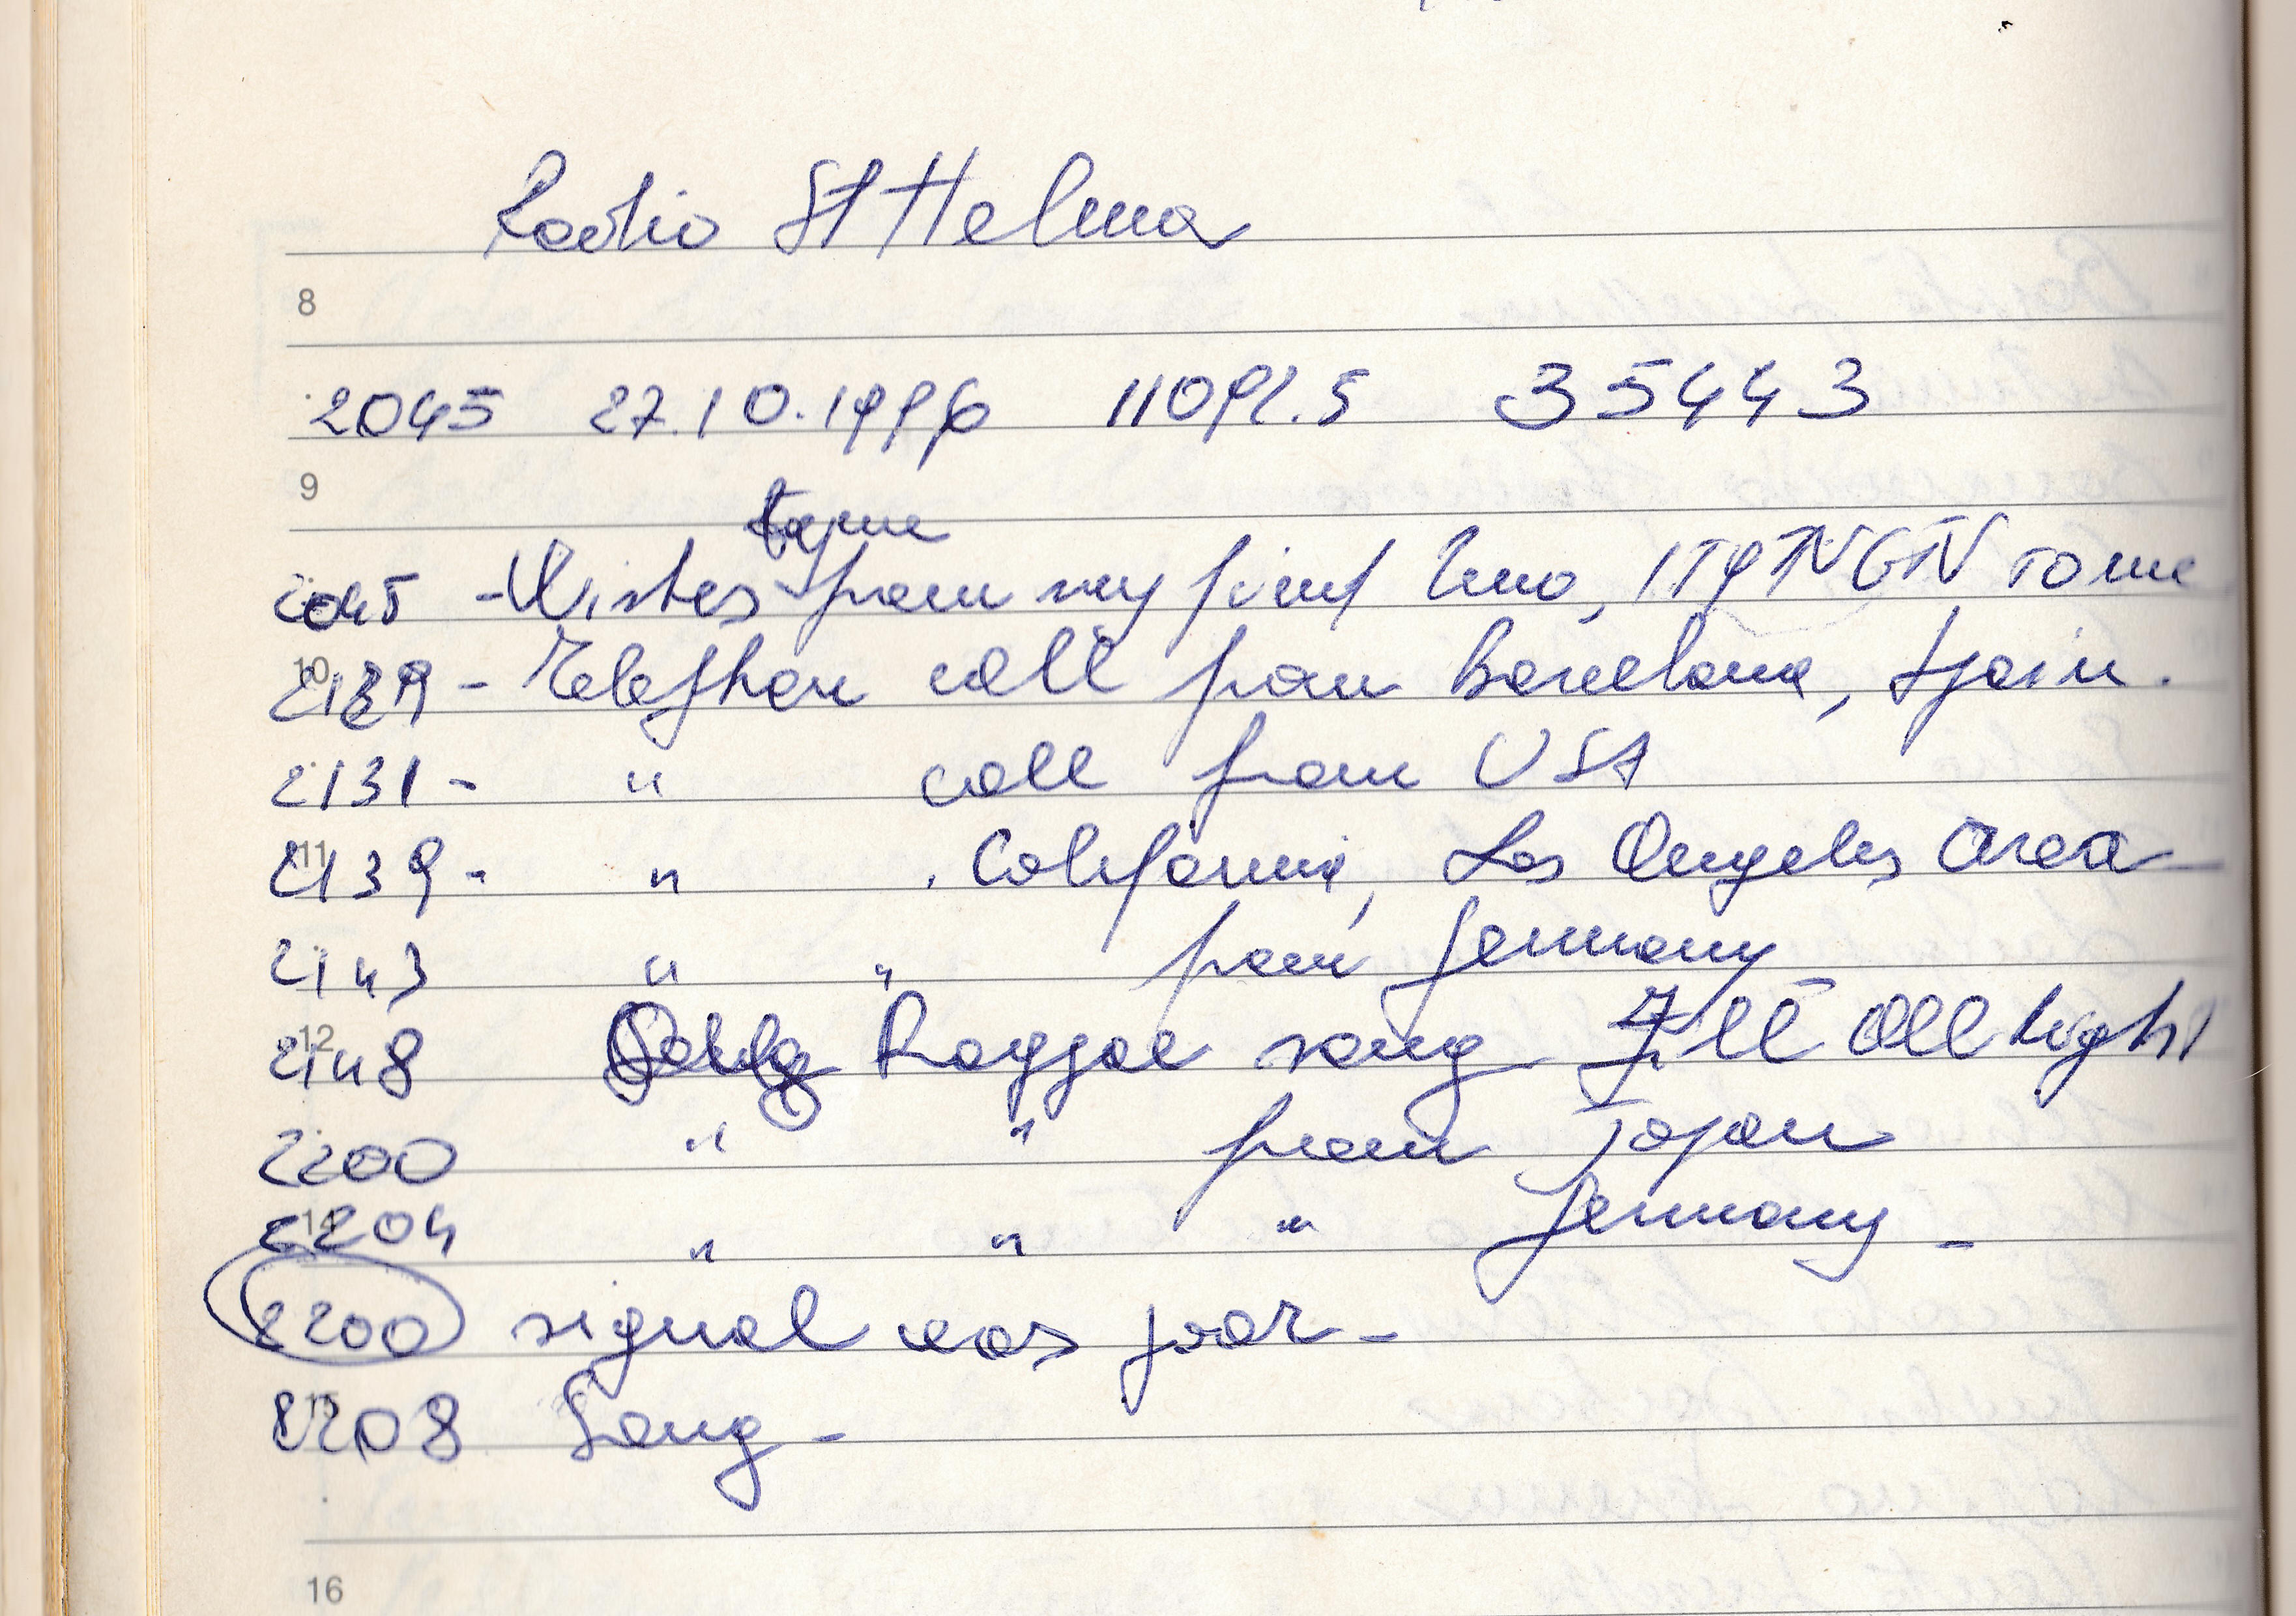 Radio St Helena
8
2045 27.10.1996 11092.5 35443
9
tapme
2045 - Wishes from my friend Enzo, IT9NGN to me
10
2129 - Telefhon call from Barcelona, Spain.
2131 - " call from USA
11
2139 - " . California, Los Angeles area -
2143 " " from Germany -
12
2148 Raggae song I'll All Right
2200 " " from Japan
14
2204 " " " Germany -
2200 signal was poor -
15
2208 Song -
16